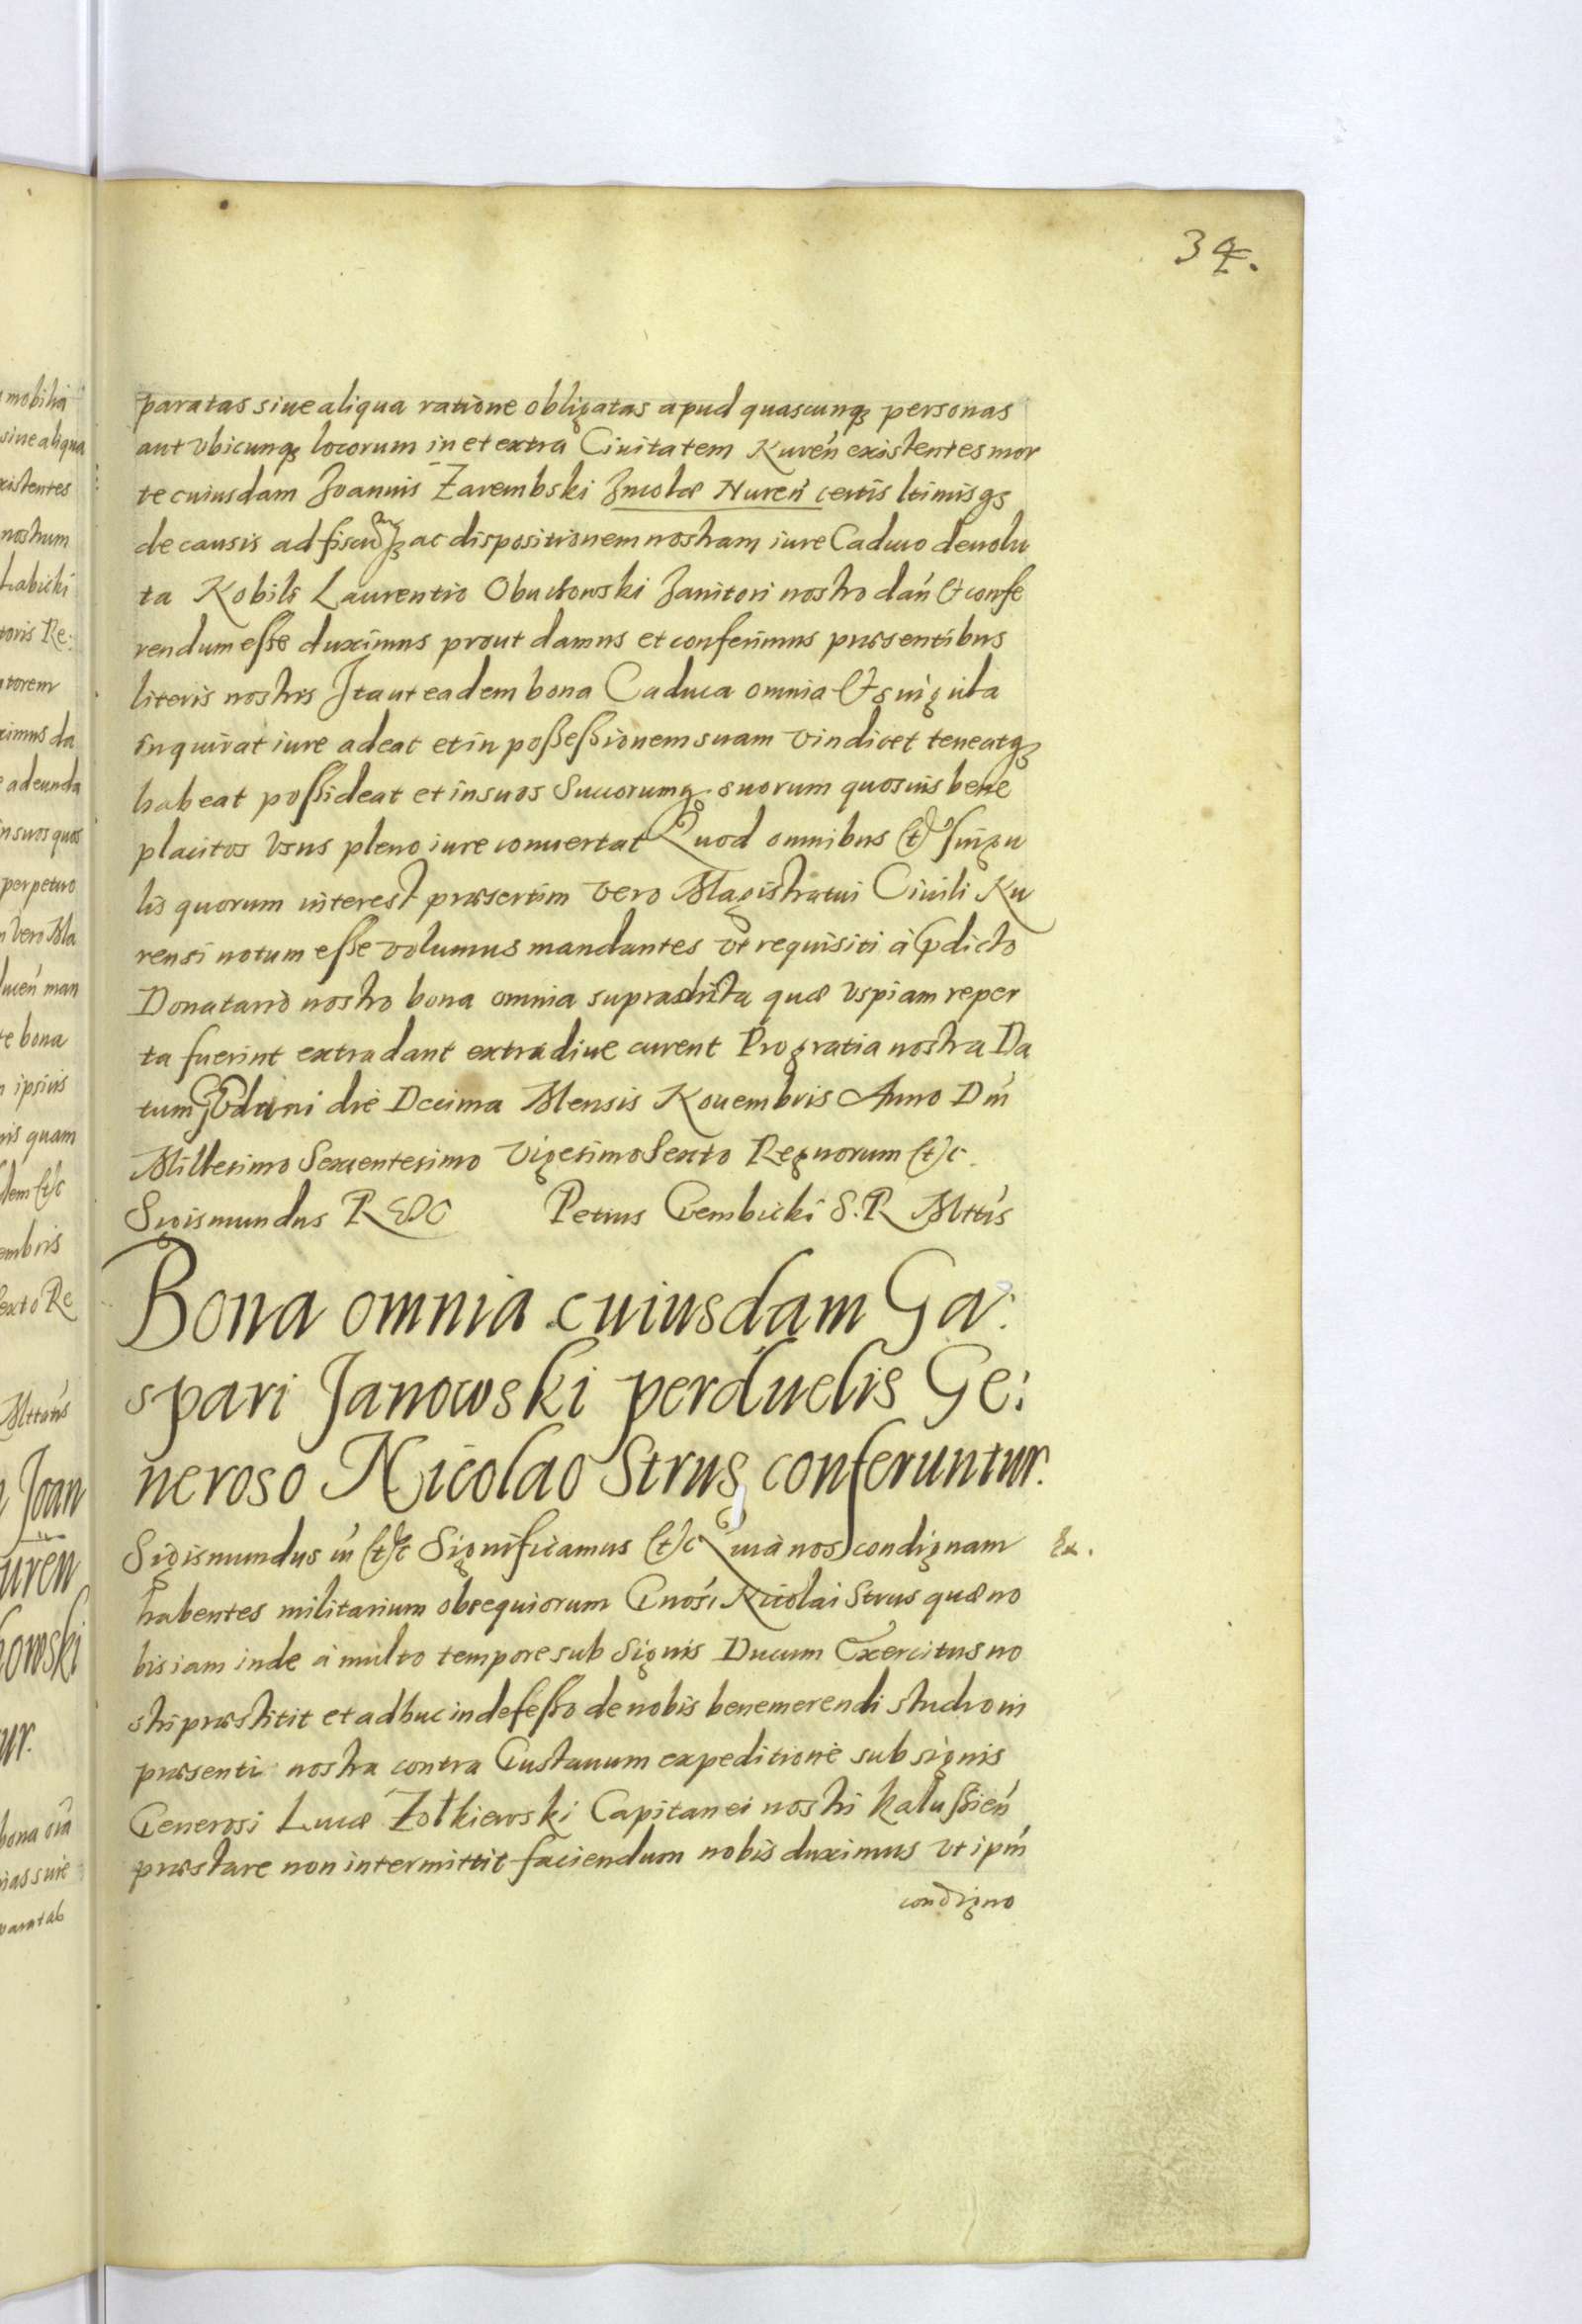 34.
paratas siue aliqua ratione obligatas apud quascunq3 personas
aut vbicunq3 locorum in et extra Ciuitatem Nuren̄ existentes mor
te cuiusdam Joannis Zarembski Jncolæ Nuren̄ certis ltimisq3
de causis ad fiscū ac dispositionem nostram iure Caduco deuolu
ta Nobili Laurentio Obuchowski Janitori nostro dan̄ & confe
rendum esse duximus prout damus et conferimus præsentibus
literis nostris Jta ut eadem bona Caduca omnia & singula
inquirat iure adeat et in possessionem suam vindicet teneatq3
habeat possideat et in suos Succorumq3 suorum quosuis bene
placitos vsus pleno iure conuertat Quod omnibus et singu
lis quorum interest præsertim vero Magistratui Ciuili Nu
rensi notum esse volumus mandantes vt requisiti à p̄dicto
Donatario nostro bona omnia supradicta quæ vspiam reper
ta fuerint extradant extradiue curent Pro gratia nostra Da
tum Gedani die Decima Mensis Nouembris Anno Dn̄i
Millesimo Sexcentesimo Vigesimo Sexto Regnorum etc.
Sigismundus REX Petrus Gembicki S. R. Mttis
Bona omnia cuiusdam Ga:
spari Janowski perduelis Ge:
neroso Nicolao Strus conferuntur.
Sigismundus iii etc Significamus etc Quia nos condignam
habentes militarium obsequiorum Gnosi Nicolai Strus quæ no
bis iam inde à multo tempore sub signis Ducum Exercitus no
stri præstitit et adhuc indefesso de nobis benemerendi studio in
præsenti nostra contra Gustauum expeditione sub signis
Generosi Lucæ Zolkiewski Capitanei nostri Kalussien̄
præstare non intermittit faciendum nobis duximus vt ipm̄
condigno